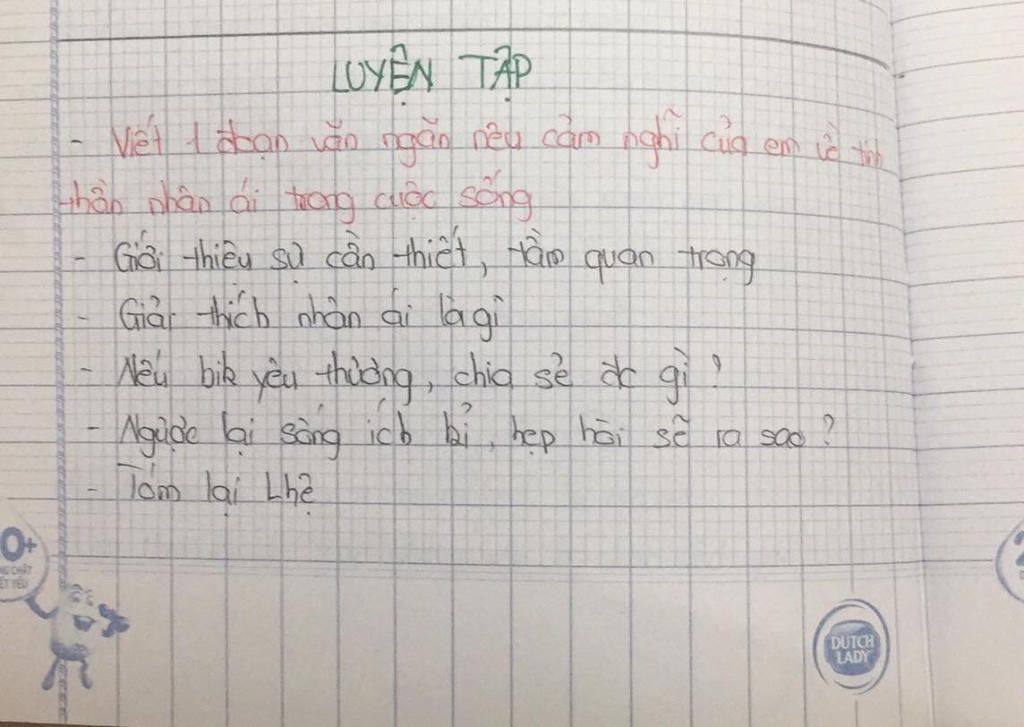 LUYỆN TẬP
- Viết 1 đoạn văn ngắn nêu cảm nghĩ của em về tinh
thần nhân ái trong cuộc sống
- Giới thiệu sự cần thiết, tầm quan trọng
- Giải thích nhân ái là gì
- Nếu bik yêu thương, chia sẻ đc gì?
- Ngược lại sống ích kỉ, hẹp hòi sẽ ra sao?
- Tóm lại Lhệ
0+
DUTCH
LADY